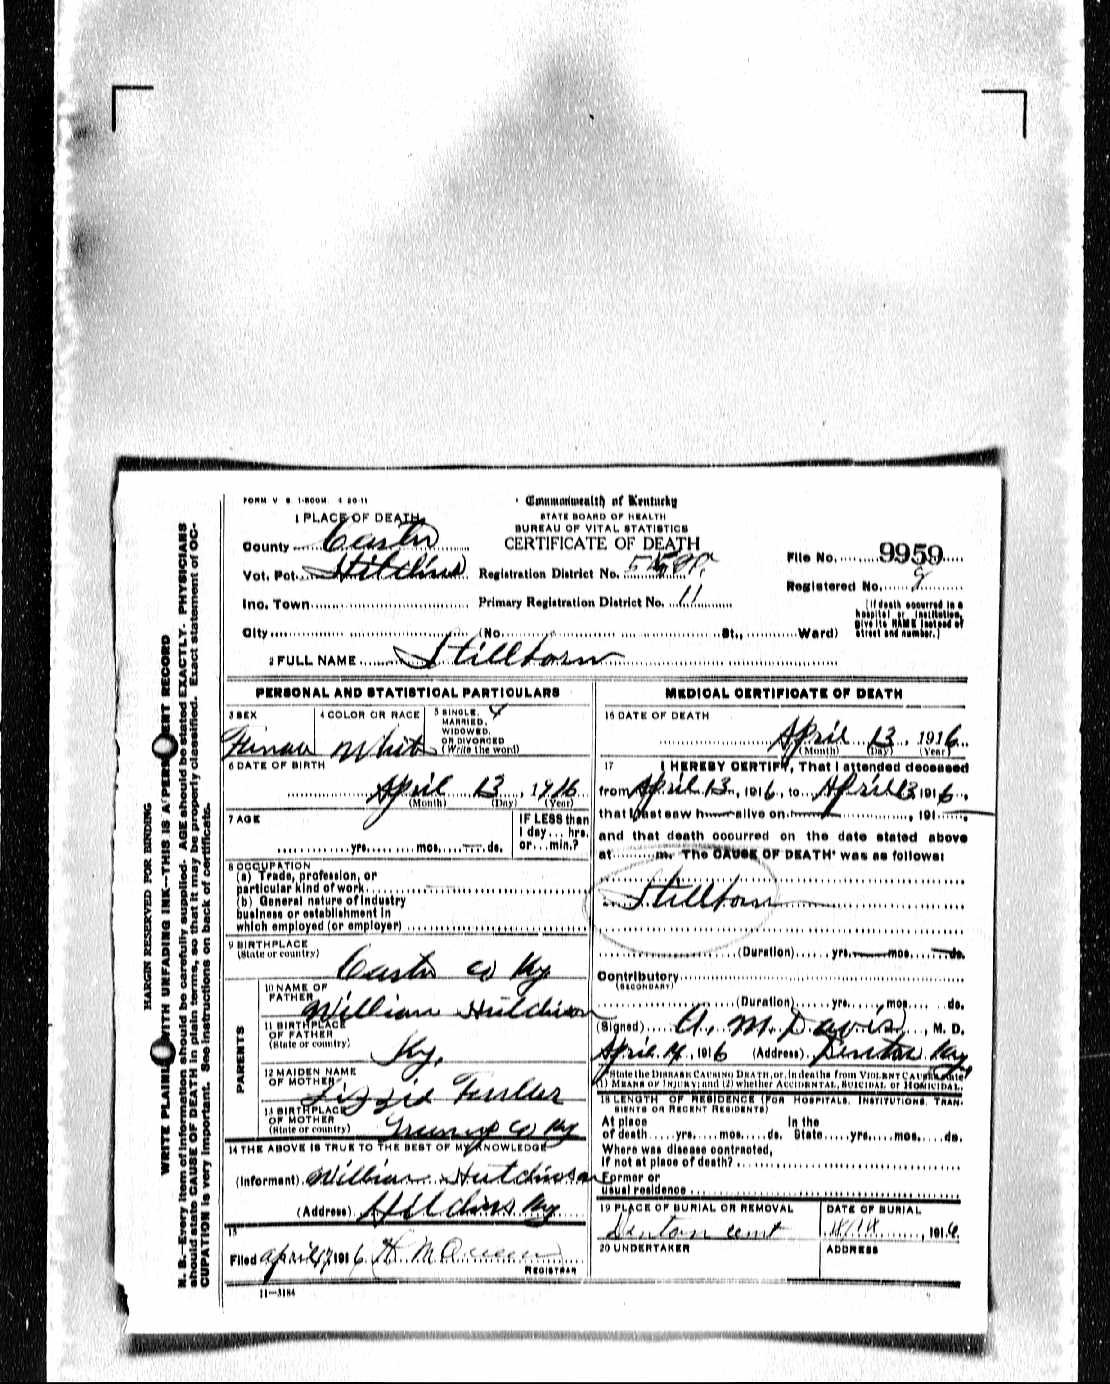 FORM V S 1-500M 4 20-11
Commonwealth of Kentucky
STATE BOARD OF HEALTH
BUREAU OF VITAL STATISTICS
CERTIFICATE OF DEATH
1 PLACE OF DEATH
County Carter
Vot. Pct. Hitchins Registration District No.
Inc. Town Primary Registration District No. 11
City (No. St., Ward)
File No. 9959
Registered No.
(If death occurred in a
hospital or institution,
give its NAME instead of
street and number.)
2 FULL NAME Stillborn
PERSONAL AND STATISTICAL PARTICULARS
3 SEX 4 COLOR OR RACE 5 SINGLE,
MARRIED,
WIDOWED,
OR DIVORCED
(Write the word)
White
6 DATE OF BIRTH
April 13, 1916
(Month) (Day) (Year)
7 AGE IF LESS than
1 day... hrs.
yrs. mos. ds. or... min.?
8 OCCUPATION
(a) Trade, profession, or
particular kind of work
(b) General nature of industry
business or establishment in
which employed (or employer)
9 BIRTHPLACE
(State or country)
Carter co Ky
PARENTS
10 NAME OF
FATHER
William Hutchison
11 BIRTHPLACE
OF FATHER
(State or country)
Ky.
12 MAIDEN NAME
OF MOTHER
Lizzie
13 BIRTHPLACE
OF MOTHER
(State or country)
Greenup co Ky
14 THE ABOVE IS TRUE TO THE BEST OF MY KNOWLEDGE
(Informant) William Hutchinson
(Address) Hitchins Ky
15
Filed April 17, 1916 H M Queen
REGISTRAR
11-3184
MEDICAL CERTIFICATE OF DEATH
16 DATE OF DEATH
April 13, 1916
(Month) (Day) (Year)
17 I HEREBY CERTIFY, That I attended deceased
from April 13, 1916, to April 13 1916,
that I last saw h alive on , 191 ,
and that death occurred on the date stated above
at m. The CAUSE OF DEATH* was as follows:
Stillborn
(Duration) yrs. mos. ds.
Contributory
(SECONDARY)
(Duration) yrs. mos. ds.
(Signed) A. M. Davis, M. D.
April 14, 1916 (Address) Denton Ky
*State the DISEASE CAUSING DEATH, or, in deaths from VIOLENT CAUSES, state
(1) MEANS OF INJURY; and (2) whether ACCIDENTAL, SUICIDAL, or HOMICIDAL.
18 LENGTH OF RESIDENCE (FOR HOSPITALS, INSTITUTIONS, TRAN-
SIENTS OR RECENT RESIDENTS)
At place In the
of death yrs. mos. ds. State yrs. mos. ds.
Where was disease contracted,
if not at place of death?
Former or
usual residence
19 PLACE OF BURIAL OR REMOVAL DATE OF BURIAL
Denton cemt 1916
20 UNDERTAKER ADDRESS
MARGIN RESERVED FOR BINDING
WRITE PLAINLY WITH UNFADING INK—THIS IS A PERMANENT RECORD
N. B.—Every item of information should be carefully supplied. AGE should be stated EXACTLY. PHYSICIANS
should state CAUSE OF DEATH in plain terms, so that it may be properly classified. Exact statement of OC-
CUPATION is very important. See instructions on back of certificate.